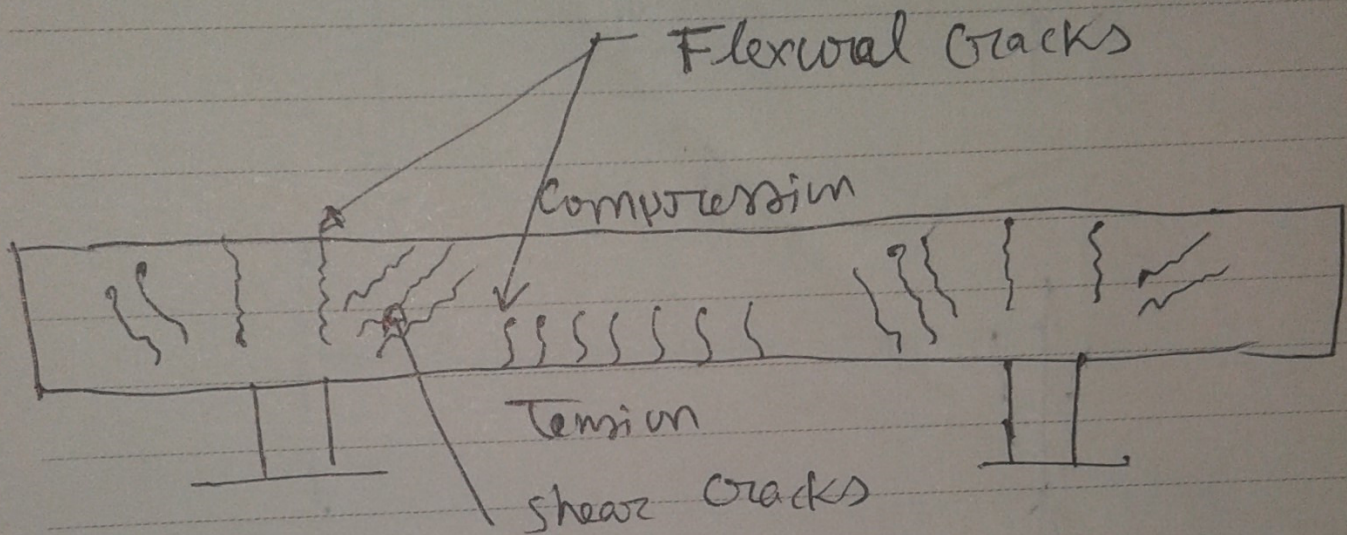 Flexural Cracks
Compression
Tension
Shear Cracks